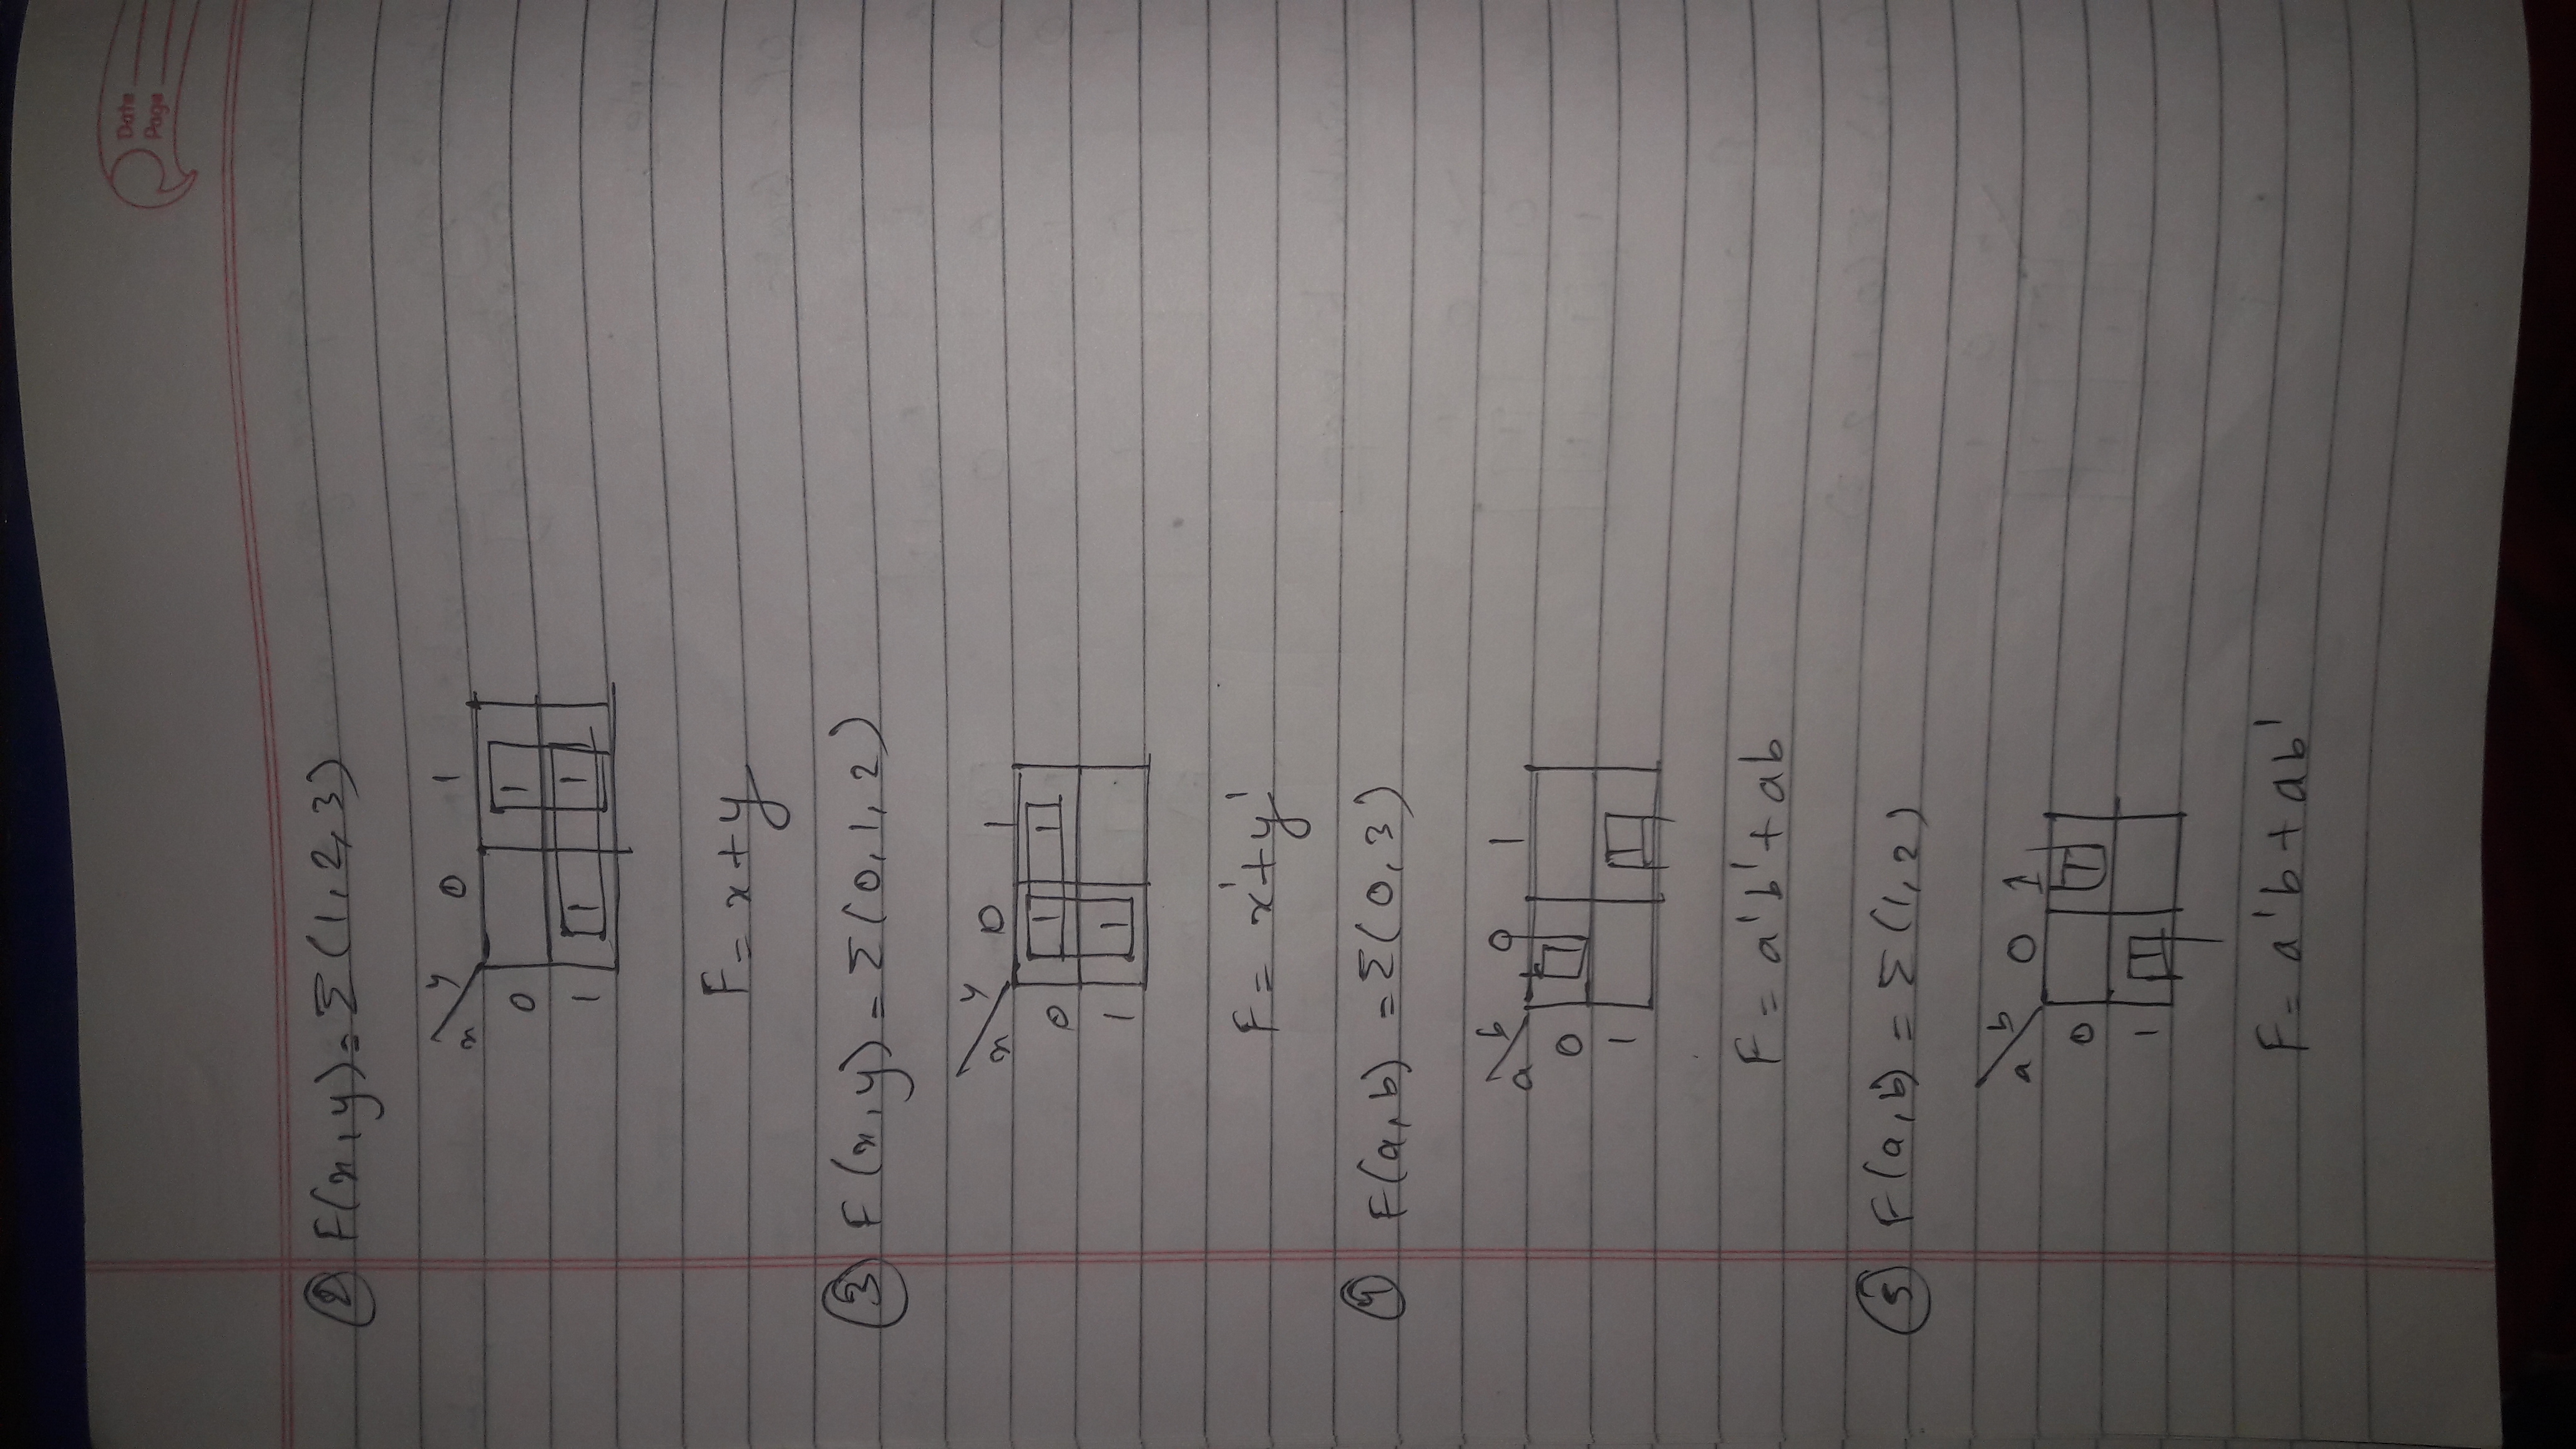 Date
Page
② F(x, y) = Σ (1, 2, 3)
x y 0 1
0 1
1 1 1
F = x + y
③ F (x, y) = Σ (0, 1, 2)
x y 0 1
0 1 1
1 1
F = x' + y'
④ F(a, b) = Σ (0, 3)
a b 0 1
0 1
1 1
F = a'b' + ab
⑤ F(a, b) = Σ (1, 2)
a b 0 1
0 1
1 1
F = a'b + ab'